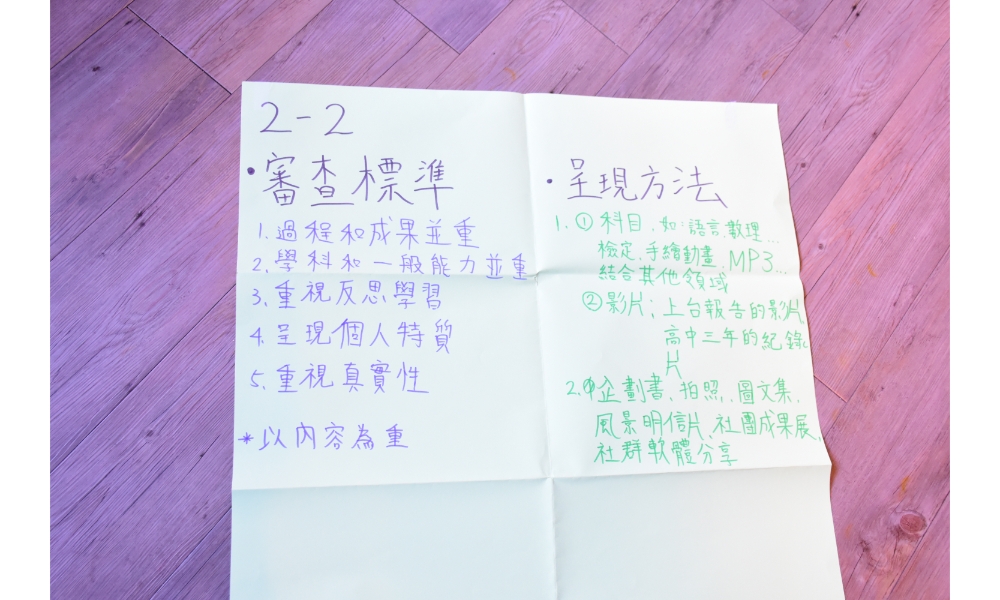 2-2
·審查標準
1.過程和成果並重
2.學科和一般能力並重
3.重視反思學習
4.呈現個人特質
5.重視真實性
*以內容為重
·呈現方法
1.①科目、如:語言、數理...
檢定、手繪動畫、MP3...
結合其他領域
②影片;上台報告的影片
高中三年的紀錄
片
2.企劃書、拍照、圖文集、
風景明信片、社團成果展、
社群軟體分享